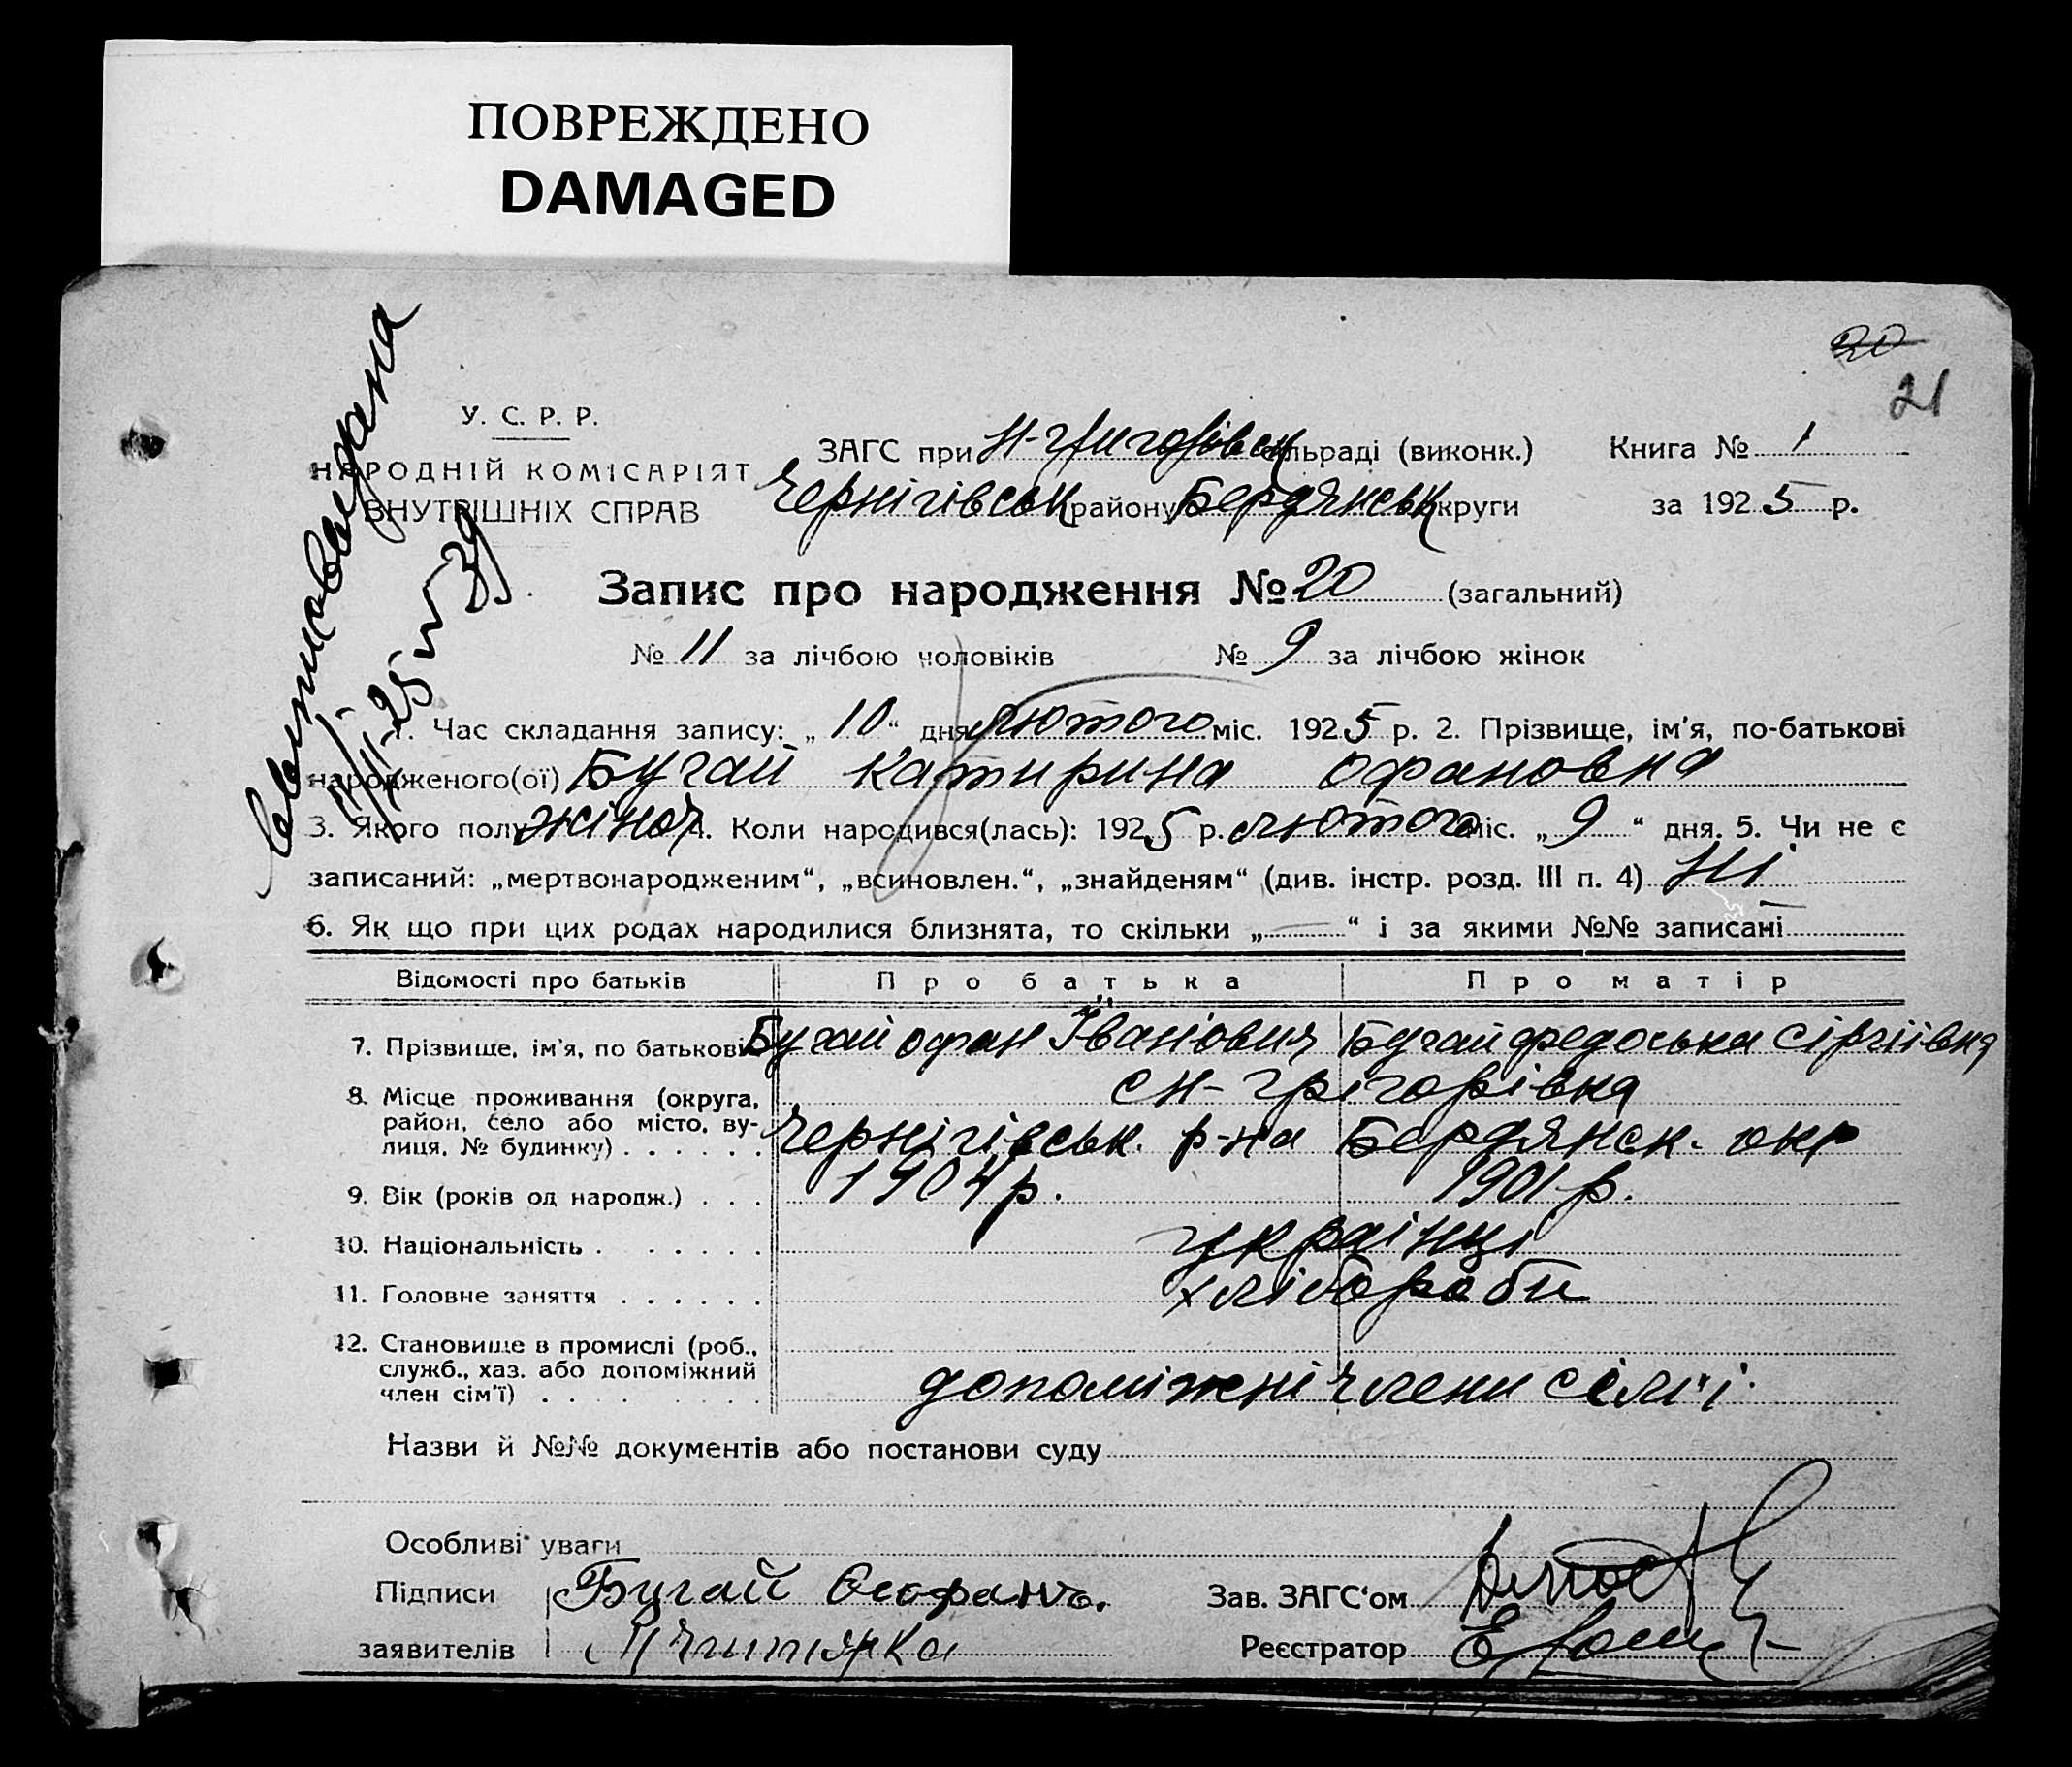 ПОВРЕЖДЕНО
DAMAGED
20
21
У. С. Р. Р.
НАРОДНІЙ КОМІСАРІЯТ
ВНУТРІШНІХ СПРАВ
ЗАГС при Н-Григорівськ сільраді (виконк.) Книга № 1
Чернігівськ району Бердянськ округи за 1925 р.
Запис про народження № 20 (загальний)
№ 11 за лічбою чоловіків № 9 за лічбою жінок
1. Час складання запису: „10“ дня лютого міс. 1925 р. 2. Прізвище, ім'я, по-батькові
народженого(ої) Бугай Катирина Офановна
3. Якого полу жіноч 4. Коли народився(лась): 1925 р. лютого міс. „9“ дня. 5. Чи не є
записаний: „мертвонародженим“, „всиновлен.“, „знайденям“ (див. інстр. розд. III п. 4) Ні
6. Як що при цих родах народилися близнята, то скільки „—“ і за якими №№ записані
Відомості про батьків Про батька Про матір
7. Прізвище, ім'я, по батькові Бугай Офан Іванович Бугай Федоська Сіргіівна
8. Місце проживання (округа, с Н-Грігорівка
район, село або місто, ву-
лиця, № будинку) Чернігівськ. р-на Бердянск. окр
9. Вік (років од народж.) 1904 р. 1901 р.
10. Національність українці
11. Головне заняття хлібороби
12. Становище в промислі (роб.,
служб., хаз. або допоміжний
член сім'ї) допоміжні члени сем'і.
Назви й №№ документів або постанови суду
Особливі уваги
Підписи Бугай Зав. ЗАГС'ом
заявителів Реєстратор